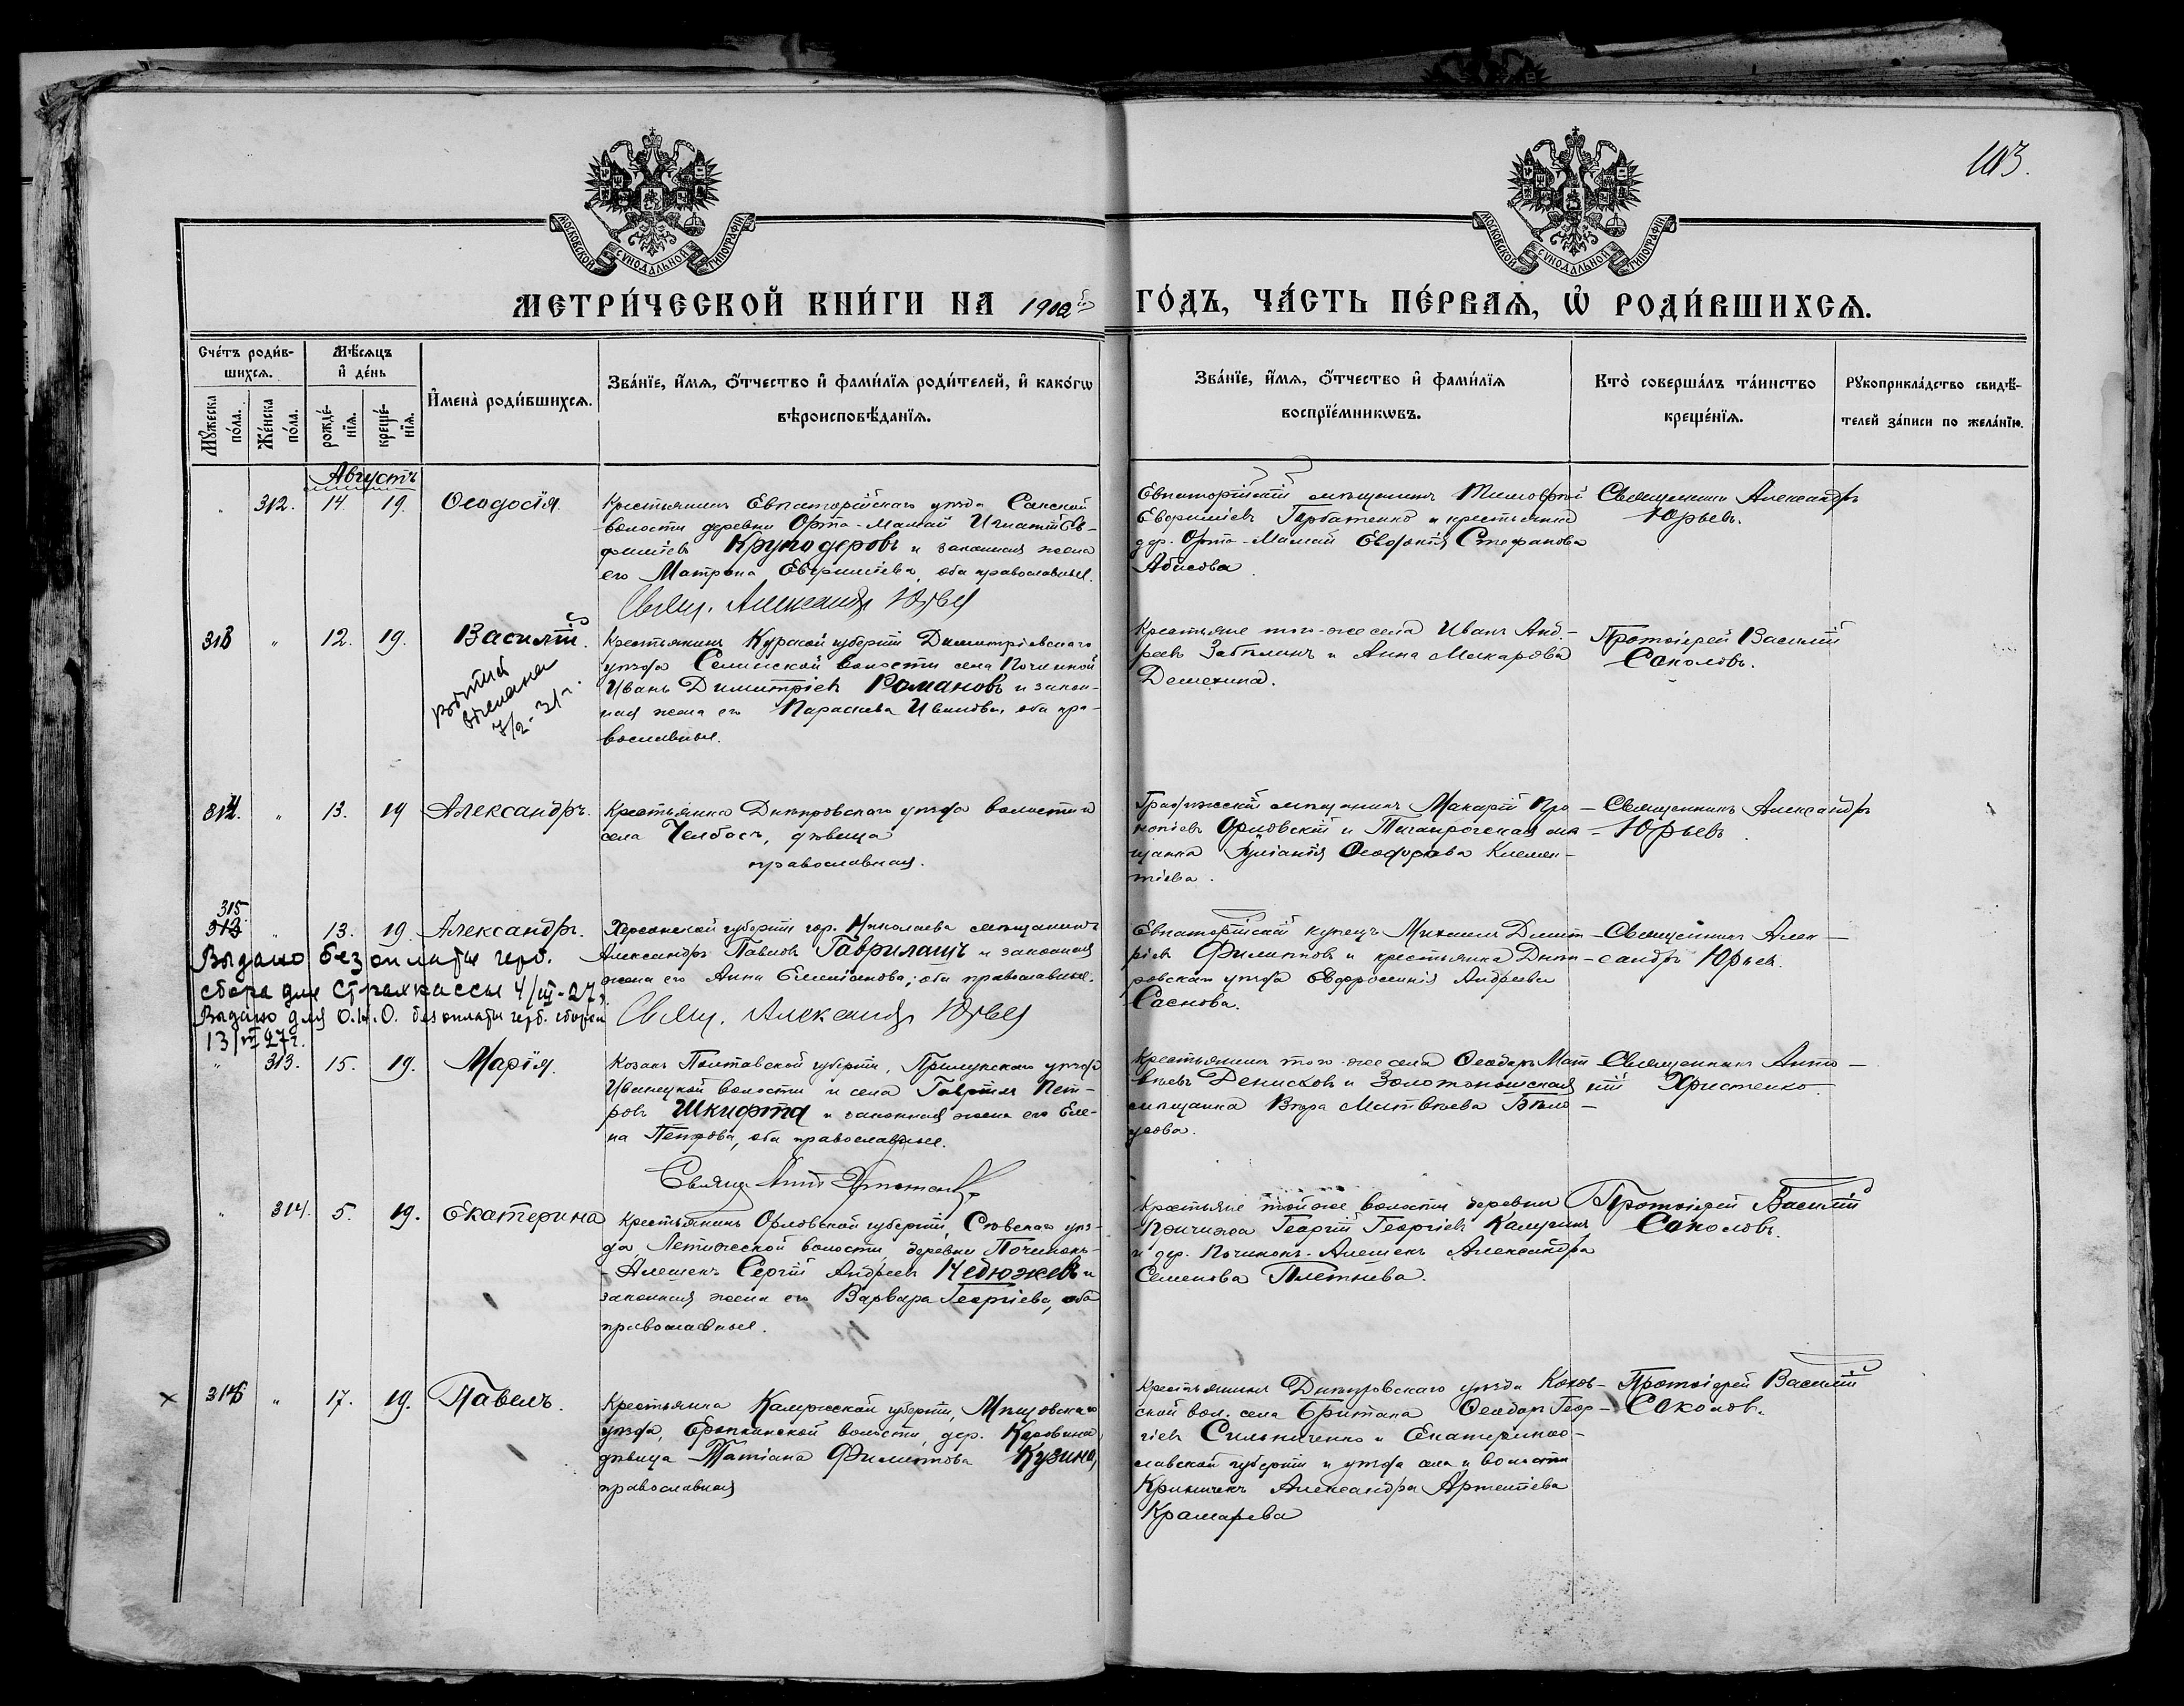 103.
МОСКОВСКОЙ СѴНОДАЛЬНОЙ ТИПОГРАФІИ
МОСКОВСКОЙ СѴНОДАЛЬНОЙ ТИПОГРАФІИ
МЕТРИ́ЧЕСКОЙ КНИ́ГИ НА 1902й ГО́ДЪ, ЧА́СТЬ ПЕ́РВАѦ, Ѡ҆ РОДИ́ВШИХСѦ.
Сче́тъ роди́в-
шихсѧ.
Мꙋ́жеска
по́ла.
Же́нска
по́ла.
Мѣ́сѧцъ
и҆ де́нь
рожде́-
нїѧ.
креще́-
нїѧ.
И҆мена̀ роди́вшихсѧ.
Зва́нїе, и҆́мѧ, ѻ҆́тчество и҆ фами́лїѧ роди́телей, и҆ како́гѡ
вѣроисповѣ́данїѧ.
Зва́нїе, и҆́мѧ, ѻ҆́тчество и҆ фами́лїѧ
воспрїе́мникѡвъ.
Кто̀ соверша́лъ та́инство
креще́нїѧ.
Рꙋкоприкла́дство свидѣ́-
телей за́писи по жела́нїю.
Августъ
312. 14. 19. Ѳеодосія.
Крестьянинъ Евпаторійскаго уѣзда Сакской
волости деревни Орта-Мамай Игнатій Ев-
фиміевъ Круподеровъ и законная жена
его Матрона Евфиміева, оба православные.
Свящ. Александръ Юрьевъ
Евпаторійскій мѣщанинъ Тимоѳей
Евфиміевъ Горбатенко и крестьянка
дер. Орта-Мамай Евфимія Стефанова
Абисова.
Священникъ Александръ
Юрьевъ.
313 " 12. 19. Василій.
7/2-31г.
Крестьянинъ Курской губерніи Димитріевскаго
уѣзда Селинской волости села Починной
Иванъ Димитріевъ Романовъ и закон-
ная жена его Параскева Иванова, оба пра-
вославные.
Крестьяне того-же села Иванъ Анд-
реевъ Забѣлинъ и Анна Макарова
Демехина.
Протоіерей Василій
Соколовъ.
314. " 13. 19 Александръ.
Крестьянка Днѣпровскаго уѣзда волости и
села Челбасъ, дѣвица
православная.
мѣщанинъ Макарій Про-
копіевъ Орловскій и Таганрогская мѣ-
щанка Іуліанія Ѳеодорова Клемен-
тіева.
Священникъ Александръ
Юрьевъ.
315
313 " 13. 19 Александръ.
Выдано без оплаты герб.
сбора для Страхкассы 4/III-27г.
Выдано для О.Н.О. без оплаты герб. сбора
13/III 27г.
Херсонской губерніи гор. Николаева мѣщанинъ
Александръ Павловъ Гаврилащъ и законная
жена его Анна Емеліанова; оба православные.
Свящ. Александръ Юрьевъ
Евпаторійскій купецъ Михаилъ Димит-
ріевъ Филипповъ и крестьянка Днѣп-
ровскаго уѣзда Евфросинія Андреева
Саснова.
Священникъ Алек-
сандръ Юрьевъ.
" 313. 15. 19. Марія.
Козакъ Полтавской губерніи, Прилукскаго уѣзда
Иваницкой волости и села Гавріилъ Пет-
ровъ Шкифта и законная жена его Еле-
на Петрова, оба православные.
Священ. Антоній Христенко
Крестьянинъ того-же села Ѳеодоръ Мат-
вѣевъ Денисковъ и Золотоношская
мѣщанка Вѣра Матвѣева Бѣло-
усова.
Священникъ Анто-
ній Христенко.
" 314. 5. 19. Екатерина
Крестьянинъ Орловской губерніи, Сѣвскаго уѣз-
да, волости, деревни Починокъ-
-Алешекъ Сергій Андреевъ Небюжевъ и
законная жена его Варвара Георгіева, оба
православные.
Крестьяне той-же волости деревни
Георгій Георгіевъ Калугинъ
и дер. Починокъ-Алешекъ Александра
Семенова Плетнева.
Протоіерей Василій
Соколовъ.
× 316 " 17. 19. Павелъ.
Крестьянка Калужской губерніи, Мещовскаго
уѣзда, волости, дер.
дѣвица Татіана Филиппова Кузина,
православная
Крестьянинъ Днѣпровскаго уѣзда
ской вол. села Британа Ѳеодоръ Геор-
гіевъ Сильниченко и Екатеринос-
лавской губерніи и уѣзда села и волости
Криничекъ Александра Артеміева
Крамарева
Протоіерей Василій
Соколовъ.